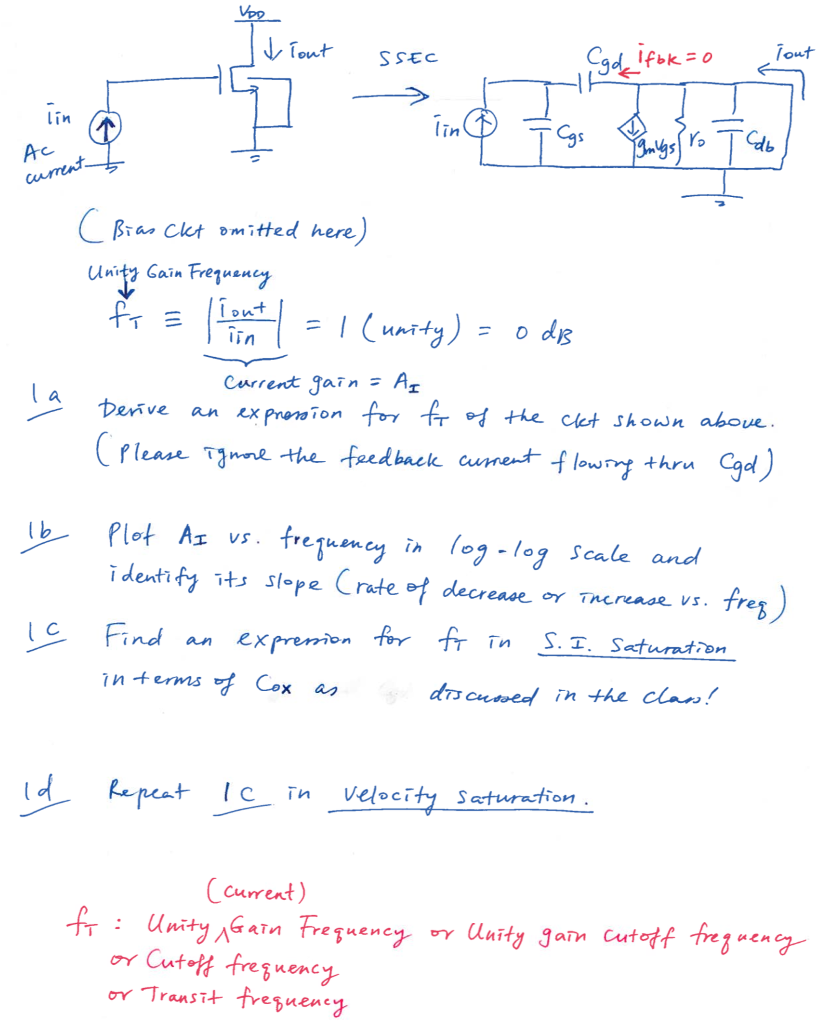 VDD
iout
SSEC
Cgd ifbk = 0
iout
iin
AC
current
iin
Cgs
gmVgs
ro
Cdb
( Bias Ckt omitted here )
Unity Gain Frequency
fT ≡ | iout / iin | = 1 ( unity ) = 0 dB
Current gain = AI
1a Derive an expression for fT of the ckt shown above.
( Please ignore the feedback current flowing thru Cgd )
1b Plot AI vs. frequency in log-log scale and
identify its slope ( rate of decrease or increase vs. freq )
1C Find an expression for fT in S.I. Saturation
in terms of Cox as discussed in the class!
1d Repeat 1C in Velocity Saturation.
(current)
fT : Unity ^ Gain Frequency or Unity gain cutoff frequency
or Cutoff frequency
or Transit frequency